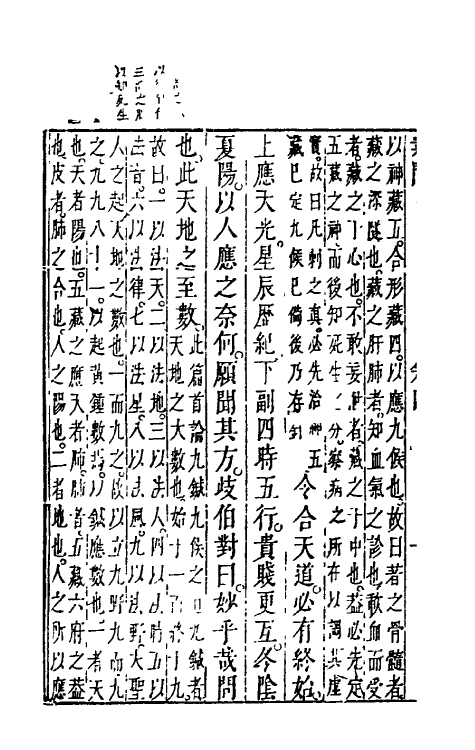 以神藏五。合形藏四。以應九候也。故曰著之骨髓者
藏之深隧也。藏之肝肺者。知血氣之診也。歃血而受
者。藏之于心也。不敢妄泄者。藏之于中也。葢必先定
五藏之神。而後知死生之分。察病之所在。以調其虛
實。故曰凡刺之真。必先治神。五
藏已定。九候已備。後乃存針
令合天道。必有終始。
上應天光星辰歷紀。下副四時五行。貴賤更互。冬陰
夏陽。以人應之奈何。願聞其方。歧伯對曰。妙乎哉問
也。此天地之至數。
此篇首論九鍼九候之道。九鍼者
天地之大數也。始于一而終于九。
故曰。一以法天。二以法地。三以法人。四以法時。五以
法音。六以法律。七以法星。八以法風。九以法野。夫聖
人之起天地之數也。一而九之。故以立九野。九而九
之。九九八十一。以起黃鐘數焉。以鍼應數也。一者天
也。天者陽也。五藏之應天者肺。肺者五藏六府之葢
也。皮者肺之合也。人之陽也。二者地也。人之所以應
三部之
以知死生